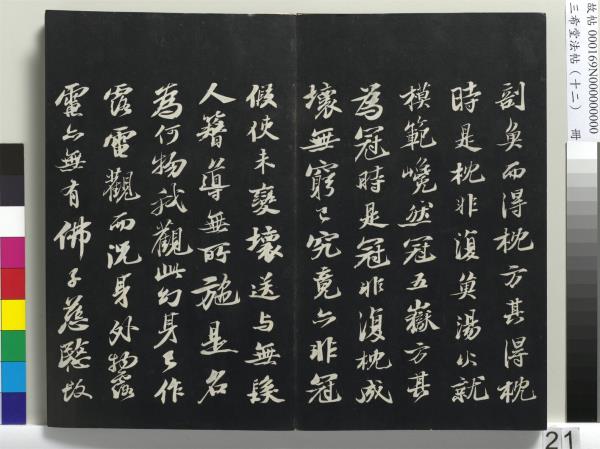 故帖 000169N000000000
三希堂法帖(十二) 冊
剖魚而得枕方其得枕
時是枕非復魚湯火就
模範巉然冠五嶽方其
為冠時是冠非復枕成
壞無窮已究竟亦非冠
假使未變壞送与無髮
人簪導無所施是名
為何物我觀此幻身已作
露電觀而況身外物露
電亦無有佛子慈愍故
21